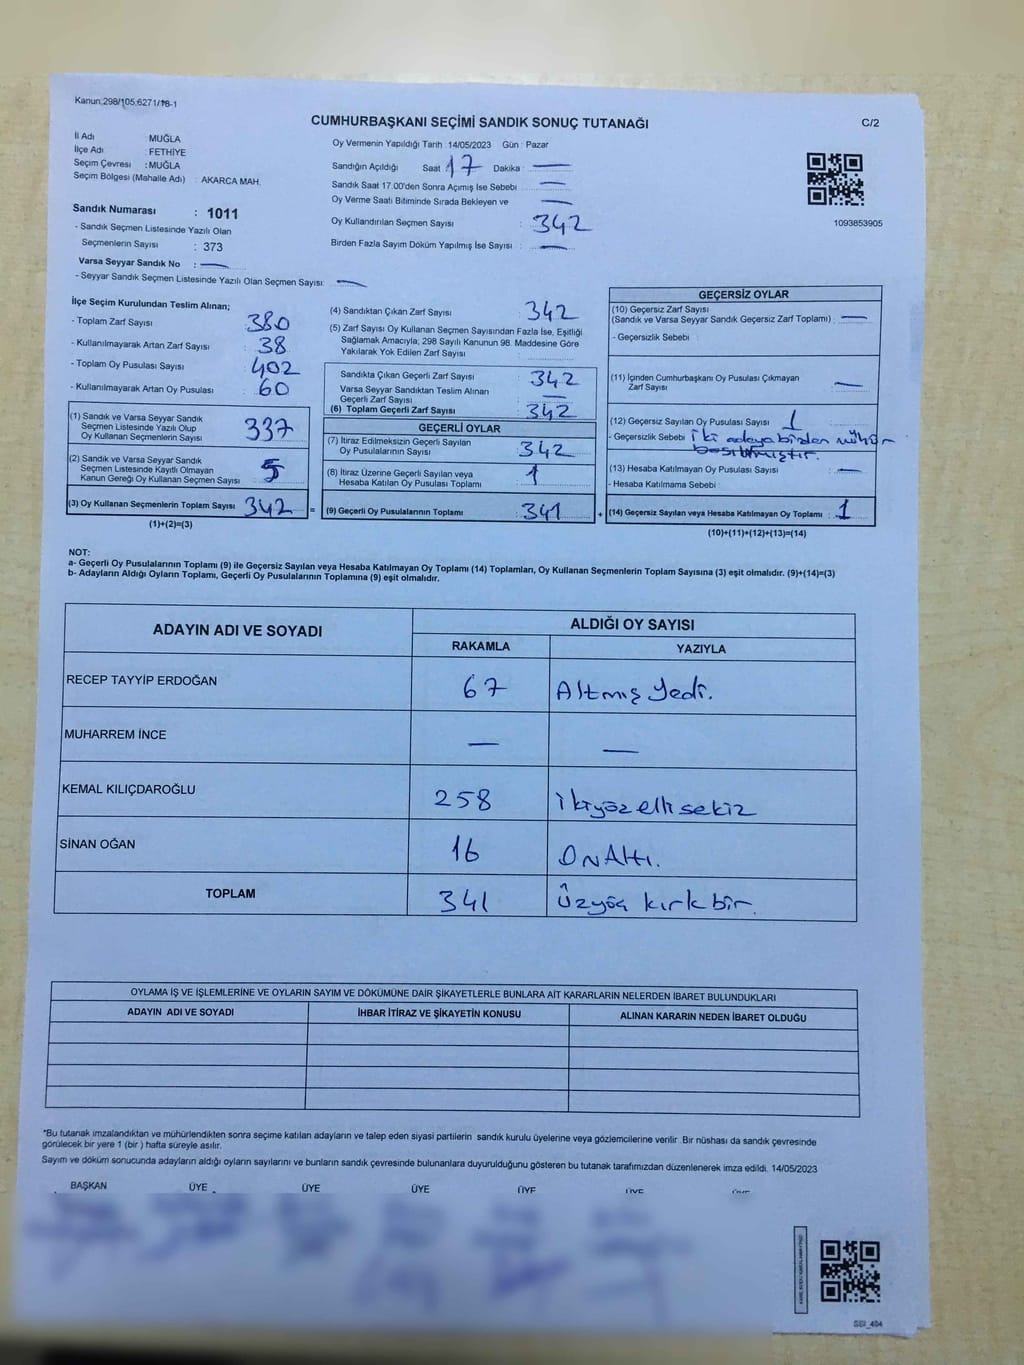 Kanun:298/105.6271/18-1
CUMHURBAŞKANI SEÇİMİ SANDIK SONUÇ TUTANAĞI
C/2
İl Adı : MUĞLA
İlçe Adı : FETHİYE
Seçim Çevresi : MUĞLA
Seçim Bölgesi (Mahalle Adı) : AKARCA MAH.
Sandık Numarası : 1011
- Sandık Seçmen Listesinde Yazılı Olan
Seçmenlerin Sayısı : 373
Varsa Seyyar Sandık No : —
- Seyyar Sandık Seçmen Listesinde Yazılı Olan Seçmen Sayısı: —
Oy Vermenin Yapıldığı Tarih : 14/05/2023 Gün : Pazar
Sandığın Açıldığı Saat : 17 Dakika : —
Sandık Saat 17.00'den Sonra Açımış İse Sebebi : —
Oy Verme Saati Bitiminde Sırada Bekleyen ve —
Oy Kullandırılan Seçmen Sayısı : 342
Birden Fazla Sayım Döküm Yapılmış İse Sayısı : —
1093853905
İlçe Seçim Kurulundan Teslim Alınan;
- Toplam Zarf Sayısı : 380
- Kullanılmayarak Artan Zarf Sayısı : 38
- Toplam Oy Pusulası Sayısı : 402
- Kullanılmayarak Artan Oy Pusulası : 60
(1) Sandık ve Varsa Seyyar Sandık
Seçmen Listesinde Yazılı Olup
Oy Kullanan Seçmenlerin Sayısı : 337
(2) Sandık ve Varsa Seyyar Sandık
Seçmen Listesinde Kayıtlı Olmayan
Kanun Gereği Oy Kullanan Seçmen Sayısı : 5
(3) Oy Kullanan Seçmenlerin Toplam Sayısı : 342 =
(1)+(2)=(3)
(4) Sandıktan Çıkan Zarf Sayısı : 342
(5) Zarf Sayısı Oy Kullanan Seçmen Sayısından Fazla İse, Eşitliği
Sağlamak Amacıyla; 298 Sayılı Kanunun 98. Maddesine Göre
Yakılarak Yok Edilen Zarf Sayısı :
Sandıkta Çıkan Geçerli Zarf Sayısı : 342
Varsa Seyyar Sandıktan Teslim Alınan
Geçerli Zarf Sayısı : —
(6) Toplam Geçerli Zarf Sayısı : 342
GEÇERLİ OYLAR
(7) İtiraz Edilmeksizin Geçerli Sayılan
Oy Pusulalarının Sayısı : 342
(8) İtiraz Üzerine Geçerli Sayılan veya
Hesaba Katılan Oy Pusulası Toplamı : 1
(9) Geçerli Oy Pusulalarının Toplamı : 341 +
GEÇERSİZ OYLAR
(10) Geçersiz Zarf Sayısı
(Sandık ve Varsa Seyyar Sandık Geçersiz Zarf Toplamı) : —
- Geçersizlik Sebebi :
(11) İçinden Cumhurbaşkanı Oy Pusulası Çıkmayan
Zarf Sayısı : —
(12) Geçersiz Sayılan Oy Pusulası Sayısı : 1
- Geçersizlik Sebebi : iki adaya birden mühür
basılmıştır.
(13) Hesaba Katılmayan Oy Pusulası Sayısı : —
- Hesaba Katılmama Sebebi :
(14) Geçersiz Sayılan veya Hesaba Katılmayan Oy Toplamı : 1
(10)+(11)+(12)+(13)=(14)
NOT:
a- Geçerli Oy Pusulalarının Toplamı (9) ile Geçersiz Sayılan veya Hesaba Katılmayan Oy Toplamı (14) Toplamları, Oy Kullanan Seçmenlerin Toplam Sayısına (3) eşit olmalıdır. (9)+(14)=(3)
b- Adayların Aldığı Oyların Toplamı, Geçerli Oy Pusulalarının Toplamına (9) eşit olmalıdır.
ADAYIN ADI VE SOYADI
ALDIĞI OY SAYISI
RAKAMLA YAZIYLA
RECEP TAYYİP ERDOĞAN 67 Altmış Yedi.
MUHARREM İNCE — —
KEMAL KILIÇDAROĞLU 258 ikiyüz elli sekiz
SİNAN OĞAN 16 OnAltı.
TOPLAM 341 Üzyöz kırk bir.
OYLAMA İŞ VE İŞLEMLERİNE VE OYLARIN SAYIM VE DÖKÜMÜNE DAİR ŞİKAYETLERLE BUNLARA AİT KARARLARIN NELERDEN İBARET BULUNDUKLARI
ADAYIN ADI VE SOYADI İHBAR İTİRAZ VE ŞİKAYETİN KONUSU ALINAN KARARIN NEDEN İBARET OLDUĞU
*Bu tutanak imzalandıktan ve mühürlendikten sonra seçime katılan adayların ve talep eden siyasi partilerin sandık kurulu üyelerine veya gözlemcilerine verilir. Bir nüshası da sandık çevresinde
görülecek bir yere 1 (bir) hafta süreyle asılır.
Sayım ve döküm sonucunda adayların aldığı oyların sayılarını ve bunların sandık çevresinde bulunanlara duyurulduğunu gösteren bu tutanak tarafımızdan düzenlenerek imza edildi. 14/05/2023
BAŞKAN ÜYE ÜYE ÜYE ÜYE ÜYE ÜYE